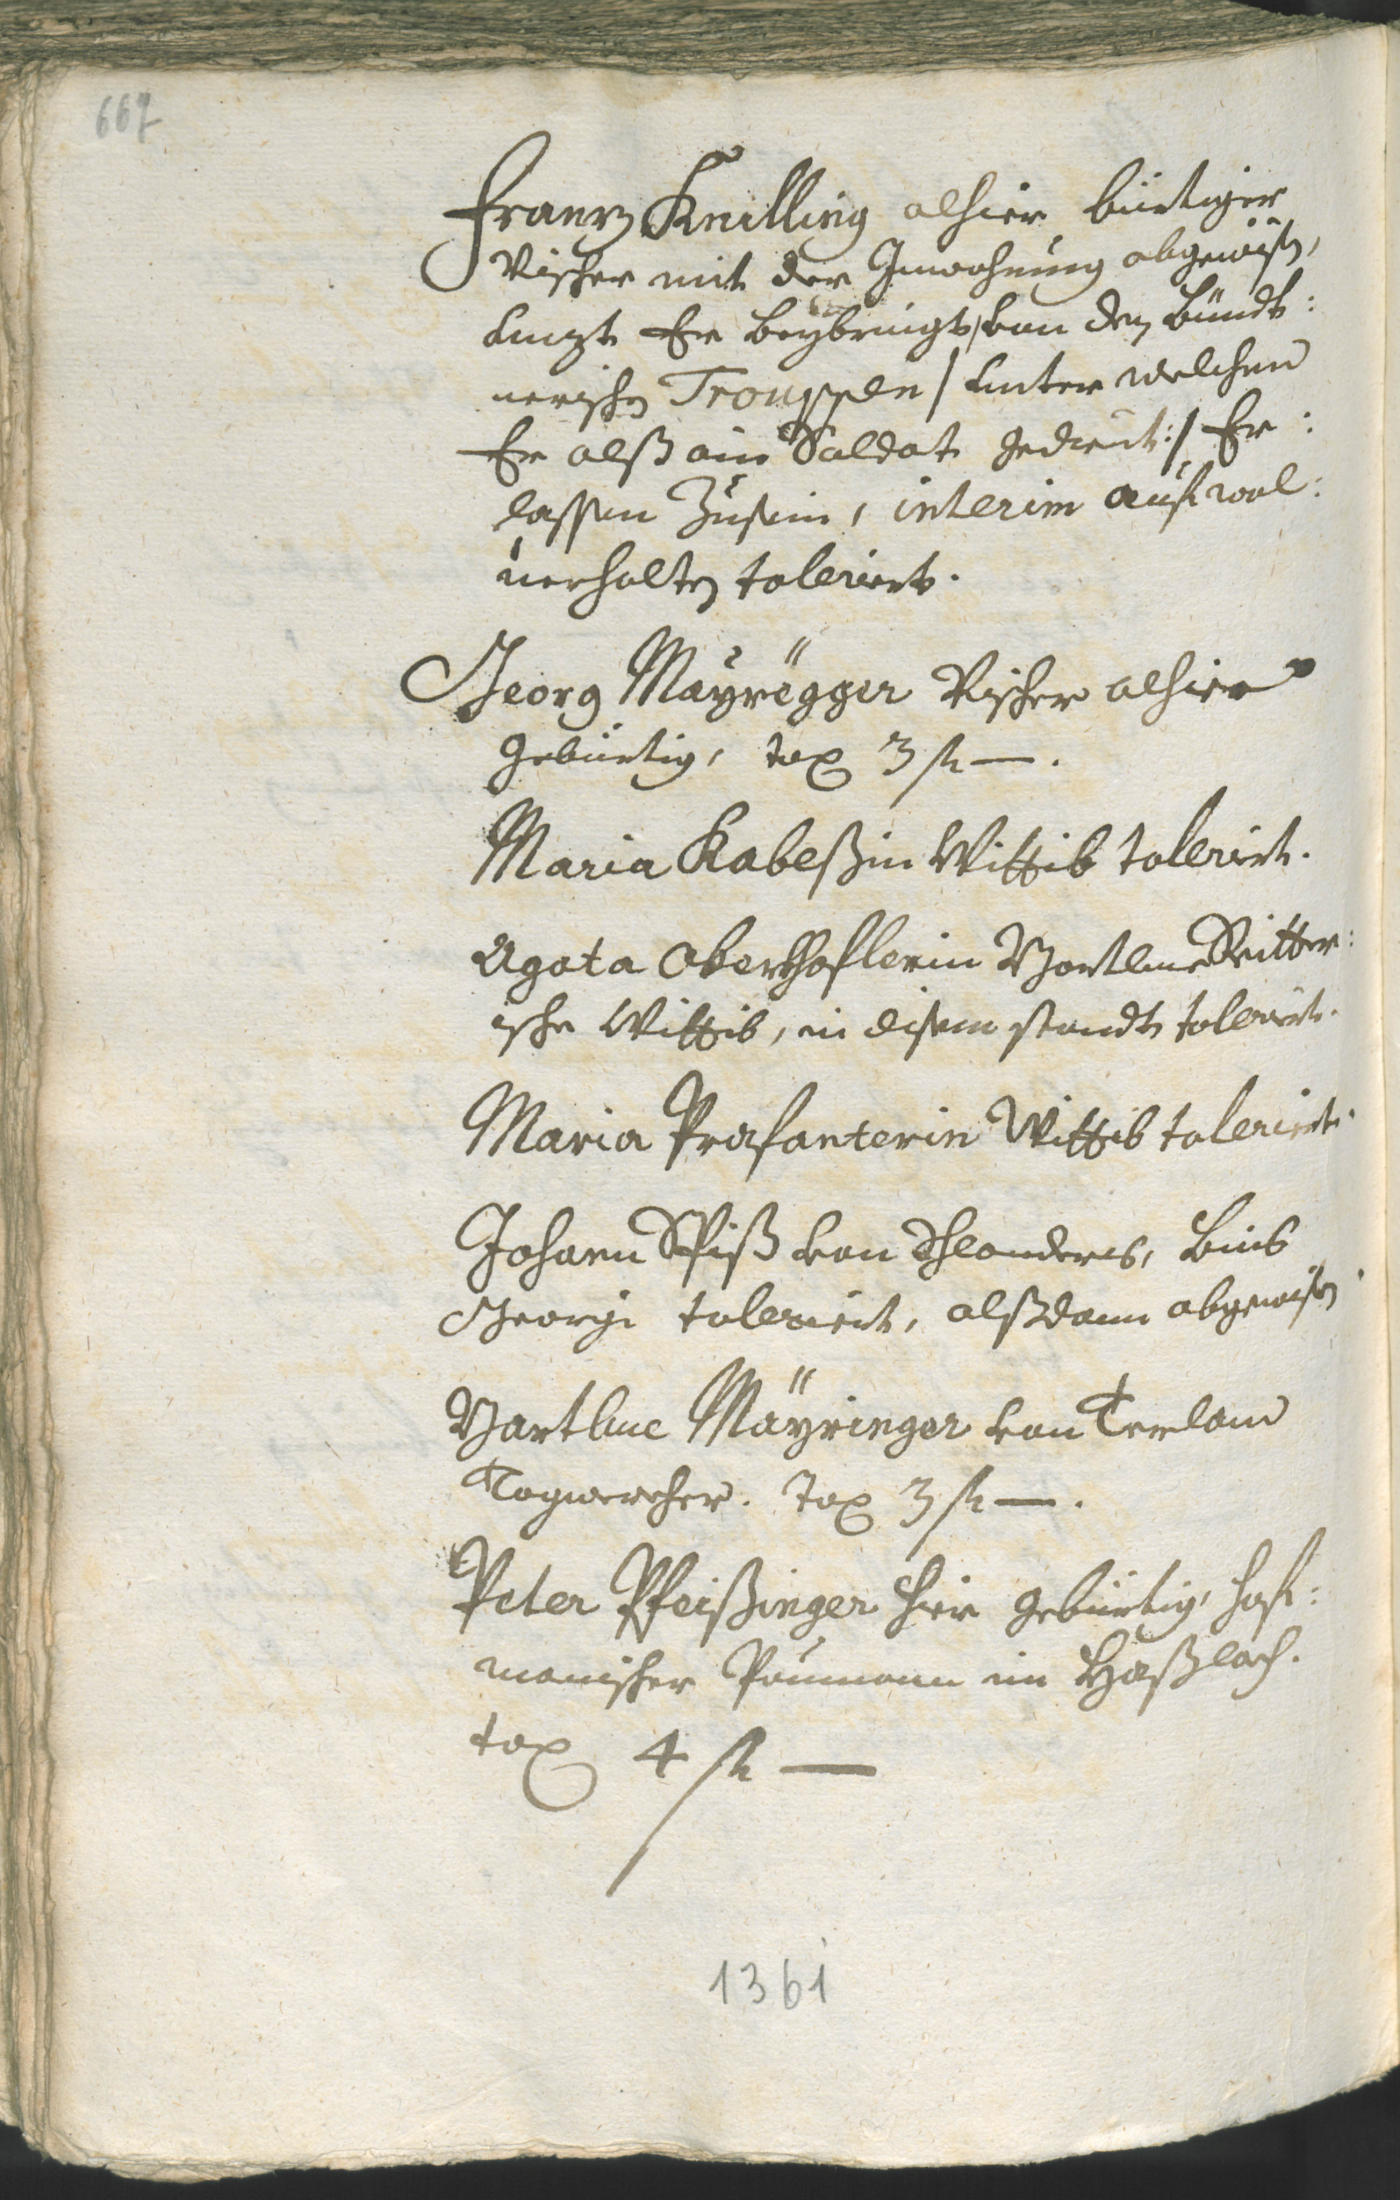 667
Franz Knilling alhier bürtiger
Vischer mit der Inwohnung abgewisen,
Er beybringt, von den Bündt:
nerischen Trouppen / unter welchen
Er alß ain Saldat gedient :/ Er:
lassen Zusein, interim auf wol:
verhalten toleriert.
Georg Mayregger Vischer alhier
gebürtig, tax 3 fl —.
Maria Kabeßin Wittib tolerirt.
Agata Oberhoflerin Bartlme Ritter:
ische Wittib, in disem standt tolerirt.
Maria Prafanterin Wittib tolerirt.
Johann Spiß von Schlanders, binß
Georgi toleriert, alßdann abgewisen
Bartlme Mayringer von Terlan
Tagwercher. Tax 3 fl —.
Peter Pfeißinger hier gebürtig, hof:
manischer Paumann im Haßlach.
tax 4 fl —
1361